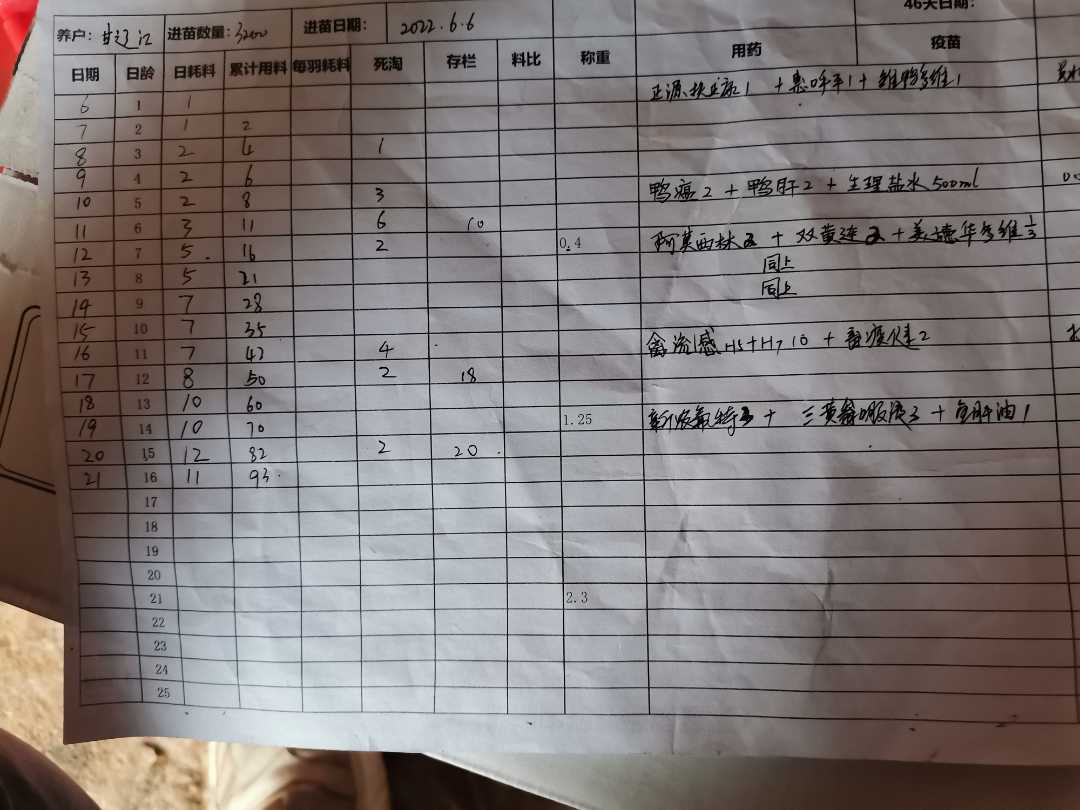 46天日期：
养户： 江 进苗数量：3200 进苗日期： 2022.6.6
日期 日龄 日耗料 累计用料 每羽耗料 死淘 存栏 料比 称重 用药 疫苗
6 1 1 正源扶正康1 + 1 + 维1
7 2 1 2
8 3 2 4 1
9 4 2 6
10 5 2 8 3 鸭瘟2 + 鸭肝2 + 生理盐水500ml
11 6 3 11 6 10
12 7 5. 16 2 0.4 阿莫西林2 + 双黄连2 + 多维1/3
13 8 5 21 同上
14 9 7 28 同上
15 10 7 35
16 11 7 42 4 禽流感H5+H7 10 + 2
17 12 8 50 2 18
18 13 10 60
19 14 10 70 1.25 3 + 三黄 3 + 鱼肝油1
20 15 12 82 2 20
21 16 11 93
17
18
19
20
21 2.3
22
23
24
25